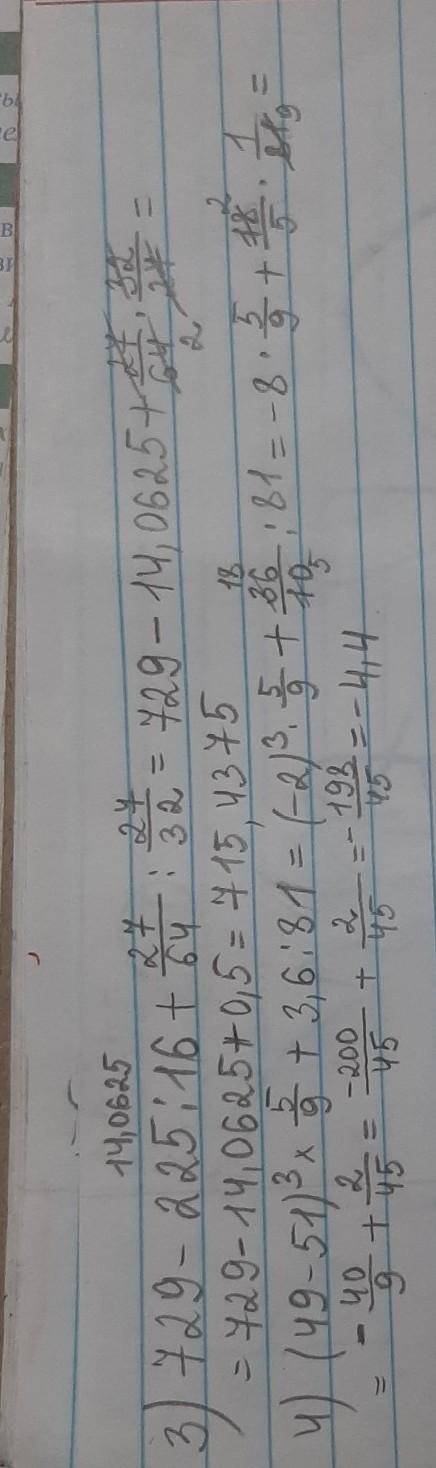 14,0625
3) 729 - 225 : 16 + 27/64 : 27/32 = 729 - 14,0625 + 27/64 · 32/27 =
2
= 729 - 14,0625 + 0,5 = 715,4375
18 2
4) (49 - 51)³ × 5/9 + 3,6 : 81 = (-2)³ · 5/9 + 36/10 : 81 = -8 · 5/9 + 18/5 · 1/81 =
5 9
= - 40/9 + 2/45 = -200/45 + 2/45 = - 198/45 = -4,4